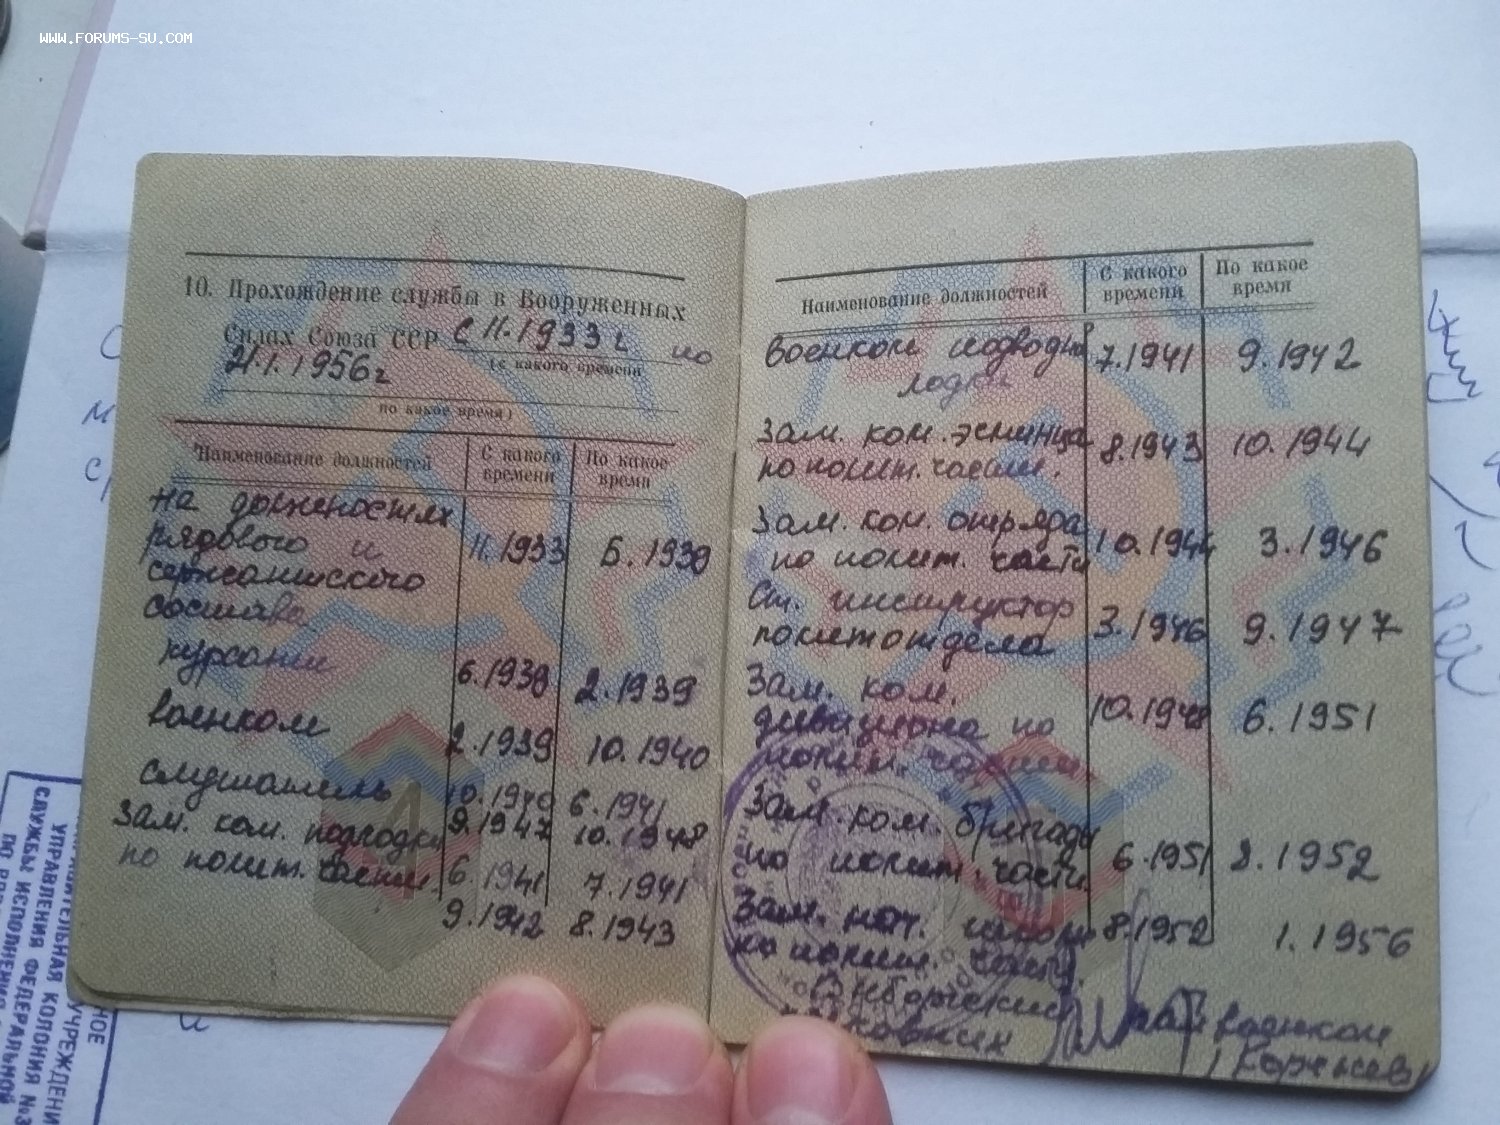 WWW.FORUMS-SU.COM
10. Прохождение службы в Вооруженных
Силах Союза ССР с 11.1933 г по
(с какого времени
21.1.1956 г
по какое время)
Наименование должностей С какого времени По какое время
на должностях
рядового и 11.1933 5.1938
сержантского
состава
курсант 6.1938 2.1939
военком 2.1939 10.1940
слушатель 10.1940 6.1941
зам. ком. подлодки 9.1947 10.1948
по полит. части. 6.1941 7.1941
9.1942 8.1943
Наименование должностей С какого времени По какое время
Военком подводн 7.1941 9.1942
лодки
Зам. ком. эсминца 8.1943 10.1944
по полит. части.
Зам. ком. отряда 10.1944 3.1946
по полит. части
Ст. инструктор
политотдела 3.1946 9.1947
Зам. ком.
дивизиона по 10.1948 6.1951
полит. части
Зам. ком. бригады
по полит. части 6.1951 8.1952
Зам. нач. школы 8.1952 1.1956
по полит. части.
Выборгский
военком
СЛУЖБЫ ИСПОЛНЕНИЯ
УПРАВЛЕНИЯ ФЕДЕРАЛЬНОЙ
КОЛОНИЯ №3